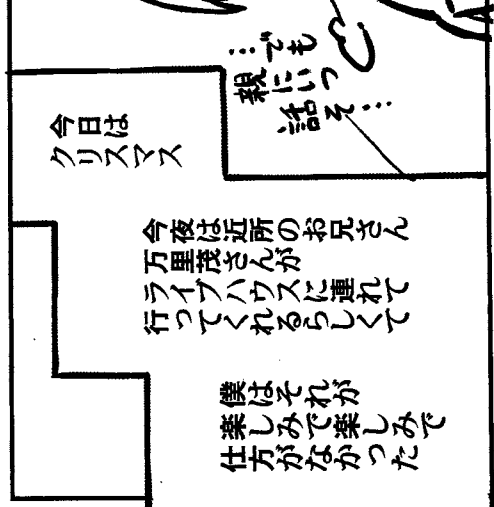 …でも
親にいつ
話そ…
今日は
クリスマス
今夜は近所のお兄さん
万里茂さんが
ライブハウスに連れて
行ってくれるらしくて
僕はそれが
楽しみで楽しみで
仕方がなかった